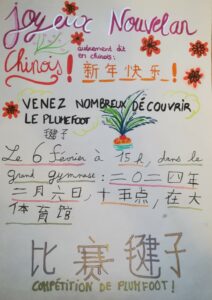 Joyeux Nouvel an
Chinois!
autrement dit
en chinois:
新年快乐!
VENEZ NOMBREUX DÉCOUVRIR
LE PLUMEFOOT
毽子
Le 6 février à 15h, dans le
grand gymnase: 二〇二四年
二月六日, 十五点, 在大
体育馆
比赛毽子
COMPÉTITION DE PLUMFOOT!